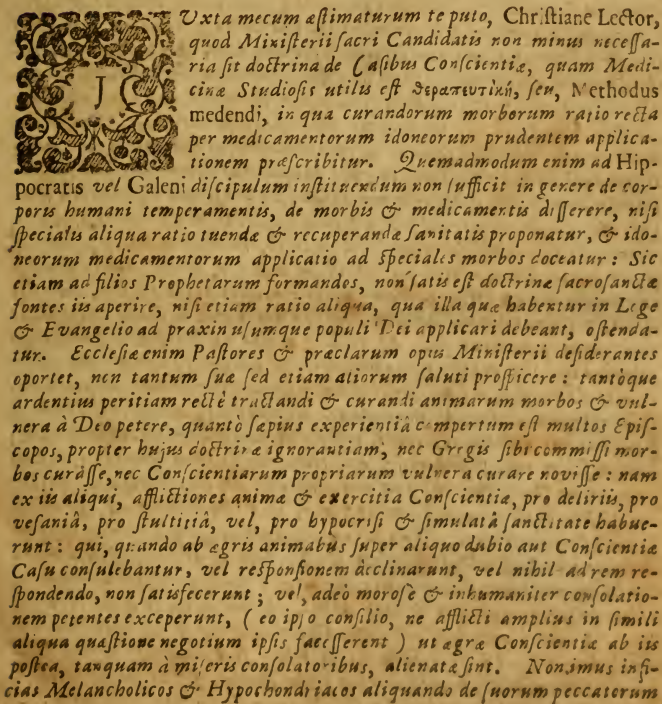 JUxta mecum æstimaturum te puto, Christiane Lector,
quod Ministerii sacri Candidatis non minus necessa-
ria sit doctrina de Casibus Conscientiæ, quam Medi-
cinæ Studiosis utilis est θεραπευτικὴ, seu, Methodus
medendi, in qua curandorum morborum ratio recta
per medicamentorum idoneorum prudentem applica-
tionem præscribitur. Quemadmodum enim ad Hip-
pocratis vel Galeni discipulum instituendum non sufficit in genere de cor-
poris humani temperamentis, de morbis & medicamentis disserere, nisi
specialis aliqua ratio tuendæ & recuperandæ sanitatis proponatur, & ido-
neorum medicamentorum applicatio ad speciales morbos doceatur: Sic
etiam ad filios Prophetarum formandos, non satis est doctrinæ sacrosanctæ
fontes iis aperire, nisi etiam ratio aliqua, qua illa quæ habentur in Lege
& Evangelio ad praxin usumque populi Dei applicari debeant, ostenda-
tur. Ecclesiæ enim Pastores & præclarum opus Ministerii desiderantes
oportet, non tantum suæ sed etiam aliorum saluti prospicere: tantóque
ardentius peritiam rectè tractandi & curandi animarum morbos & vul-
nera à Deo petere, quantò sæpius experientiâ compertum est multos Epis-
copos, propter hujus doctrinæ ignorantiam, nec Gregis sibi commissi mor-
bos curâsse, nec Conscientiarum propriarum vulnera curare novisse: nam
ex iis aliqui, afflictiones animæ & exercitia Conscientiæ, pro deliriis, pro
vesaniâ, pro stultitiâ, vel, pro hypocrisi & simulatâ sanctitate habue-
runt: qui, quando ab ægris animabus super aliquo dubio aut Conscientiæ
Casu consulebantur, vel responsionem declinarunt, vel nihil ad rem re-
spondendo, non satisfecerunt; vel, adeò morose & inhumaniter consolatio-
nem petentes exceperunt, (eo ipso consilio, ne afflicti amplius in simili
aliqua quæstione negotium ipsis facesserent) ut ægræ Conscientiæ ab iis
postea, tanquam à miseris consolatoribus, alienatæ sint. Non imus infi-
cias Melancholicos & Hypochondriacos aliquando de suorum peccatorum